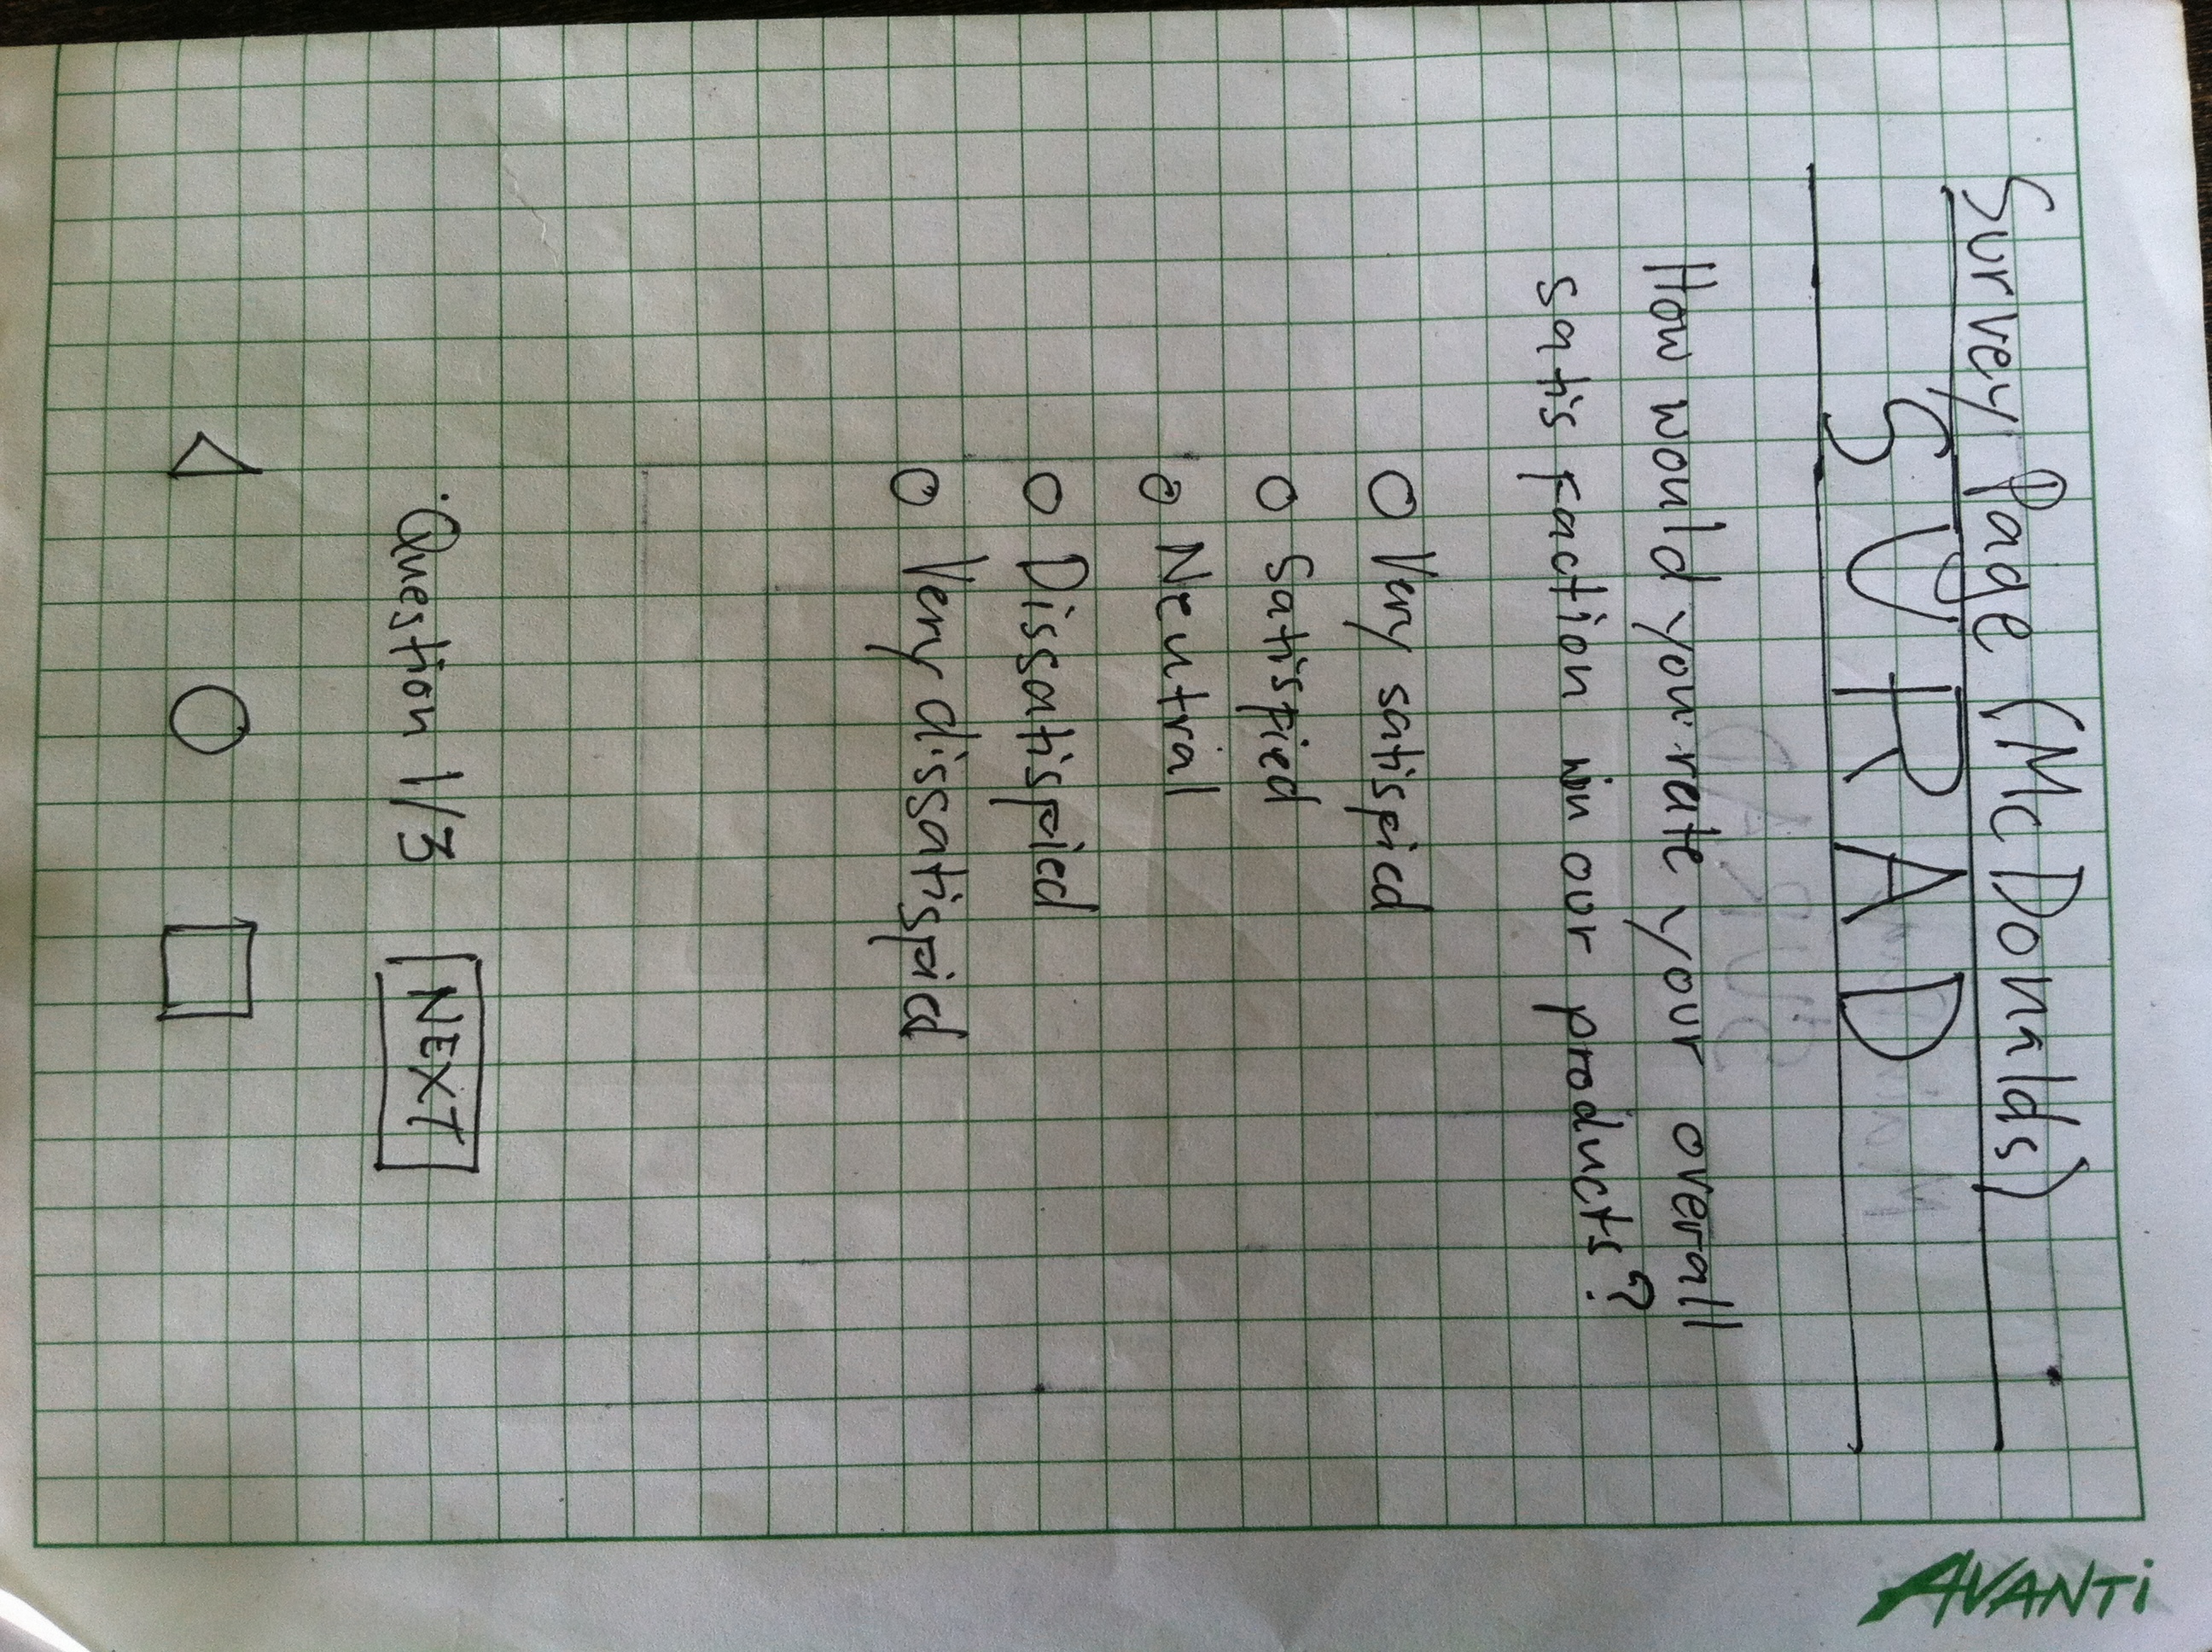 Survey Page (McDonalds)
SURAD
How would you rate your overall
satisfaction in our products?
Very satisfied
Satisfied
Neutral
Dissatisfied
Very dissatisfied
Question 1/3 NEXT
AVANTi